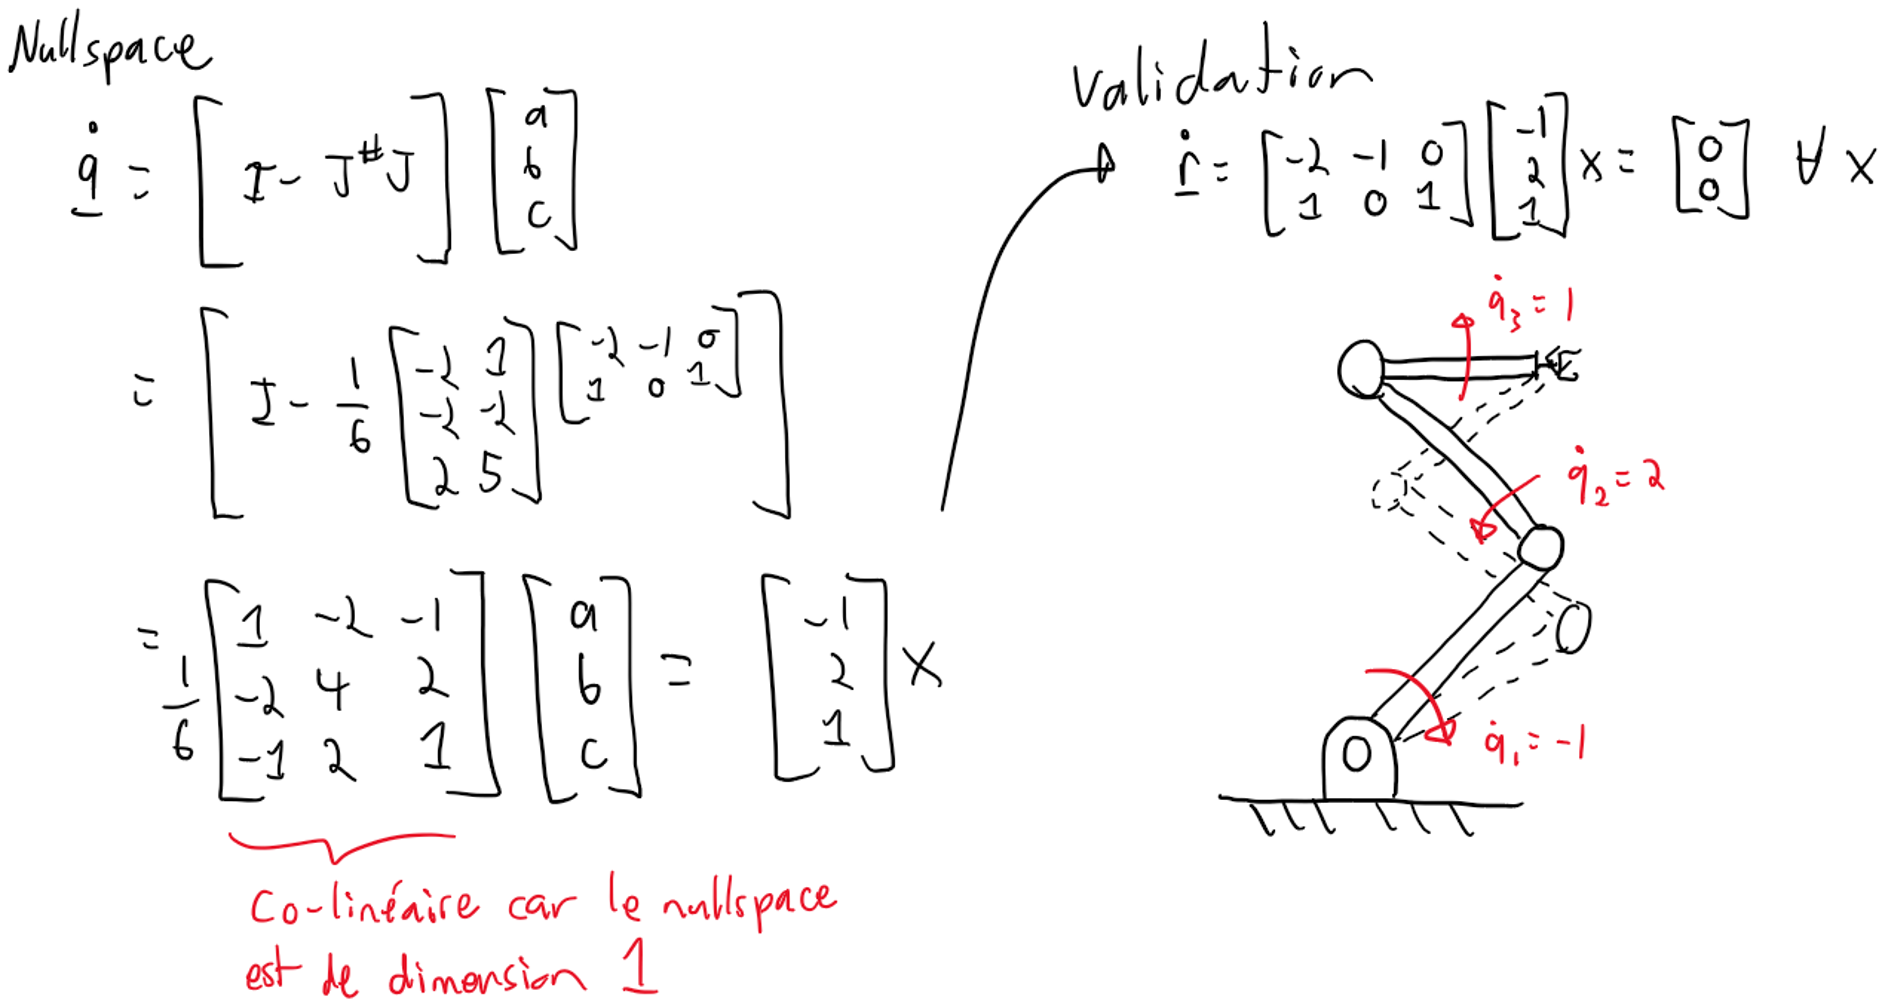 Nullspace
q̇ = [ I - J^# J ] [ a b c ]
= [ I - 1/6 [ -2 1 ; -2 -2 ; 2 5 ] [ -2 -1 0 ; 1 0 1 ] ]
= 1/6 [ 1 -2 -1 ; -2 4 2 ; -1 2 1 ] [ a b c ] = [ -1 2 1 ] x
Co-linéaire car le nullspace
est de dimension 1
Validation
ṙ = [ -2 -1 0 ; 1 0 1 ] [ -1 2 1 ] x = [ 0 0 ] ∀ x
q̇₃ = 1
q̇₂ = 2
q̇₁ = -1